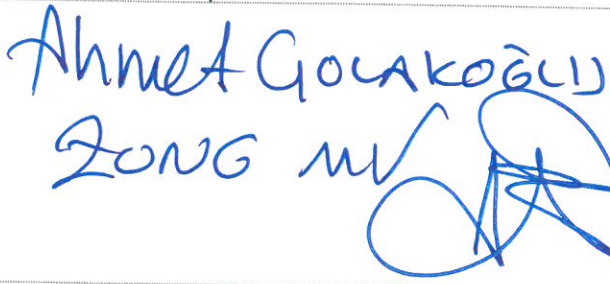 Ahmet ÇOLAKOĞLU
ZONG MV